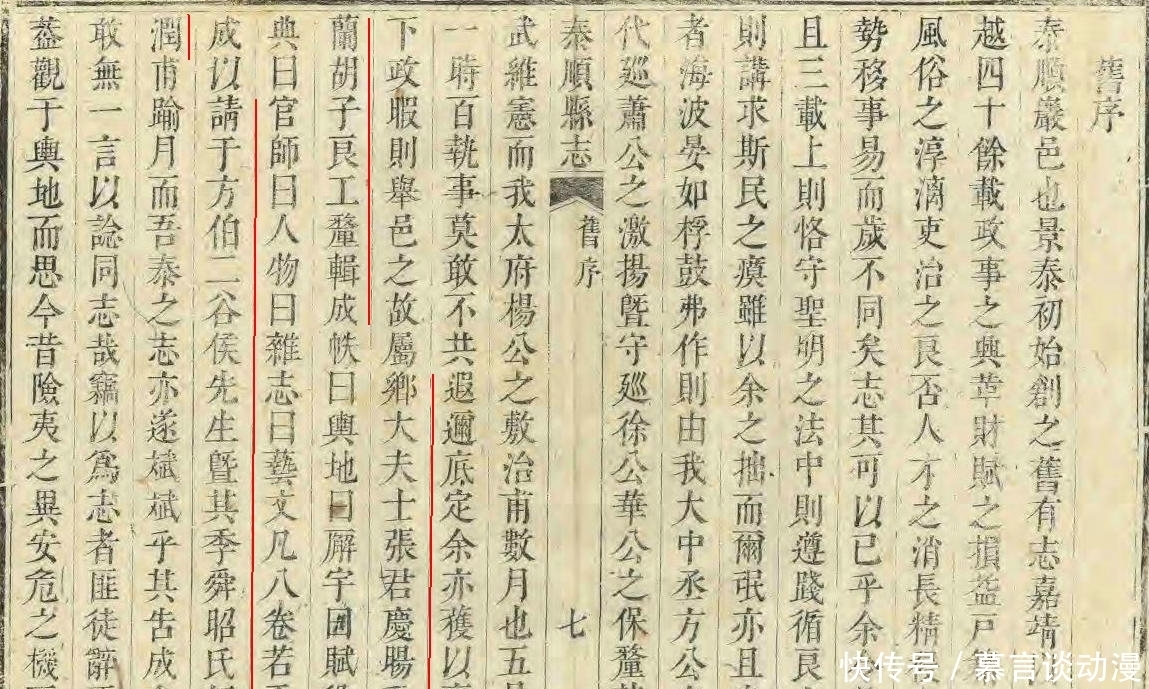 舊序
泰順巖邑也景泰初始創之舊有志嘉靖
越四十餘載政事之興革財賦之損益戶
風俗之淳漓吏治之良否人才之消長精
勢移事易而歲不同矣志其可以已乎余
且三載上則恪守聖明之法中則遵踐循良
則講求斯民之瘼雖以余之拙而爾氓亦且
者海波晏如桴鼓弗作則由我大中丞方公
代廵蕭公之激揚暨守廵徐公華公之保釐
泰順縣志
舊序
七
武維憲而我太府楊公之敷治甫數月也五
一時百執事莫敢不共遐邇底定余亦獲以
下政暇則舉邑之故屬鄉大夫士張君慶暘
蘭胡子艮工釐輯成帙曰輿地曰廨宇曰賦
典曰官師曰人物曰雜志曰藝文凡八卷若
成以請于方伯二谷侯先生暨其季舜昭氏
潤甫踰月而吾泰之志亦遂斌斌乎其告成
敢無一言以諗同志哉竊以為志者匪徒辭
葢觀于輿地而思今昔險夷之異安危之機
快传号 / 慕言谈动漫